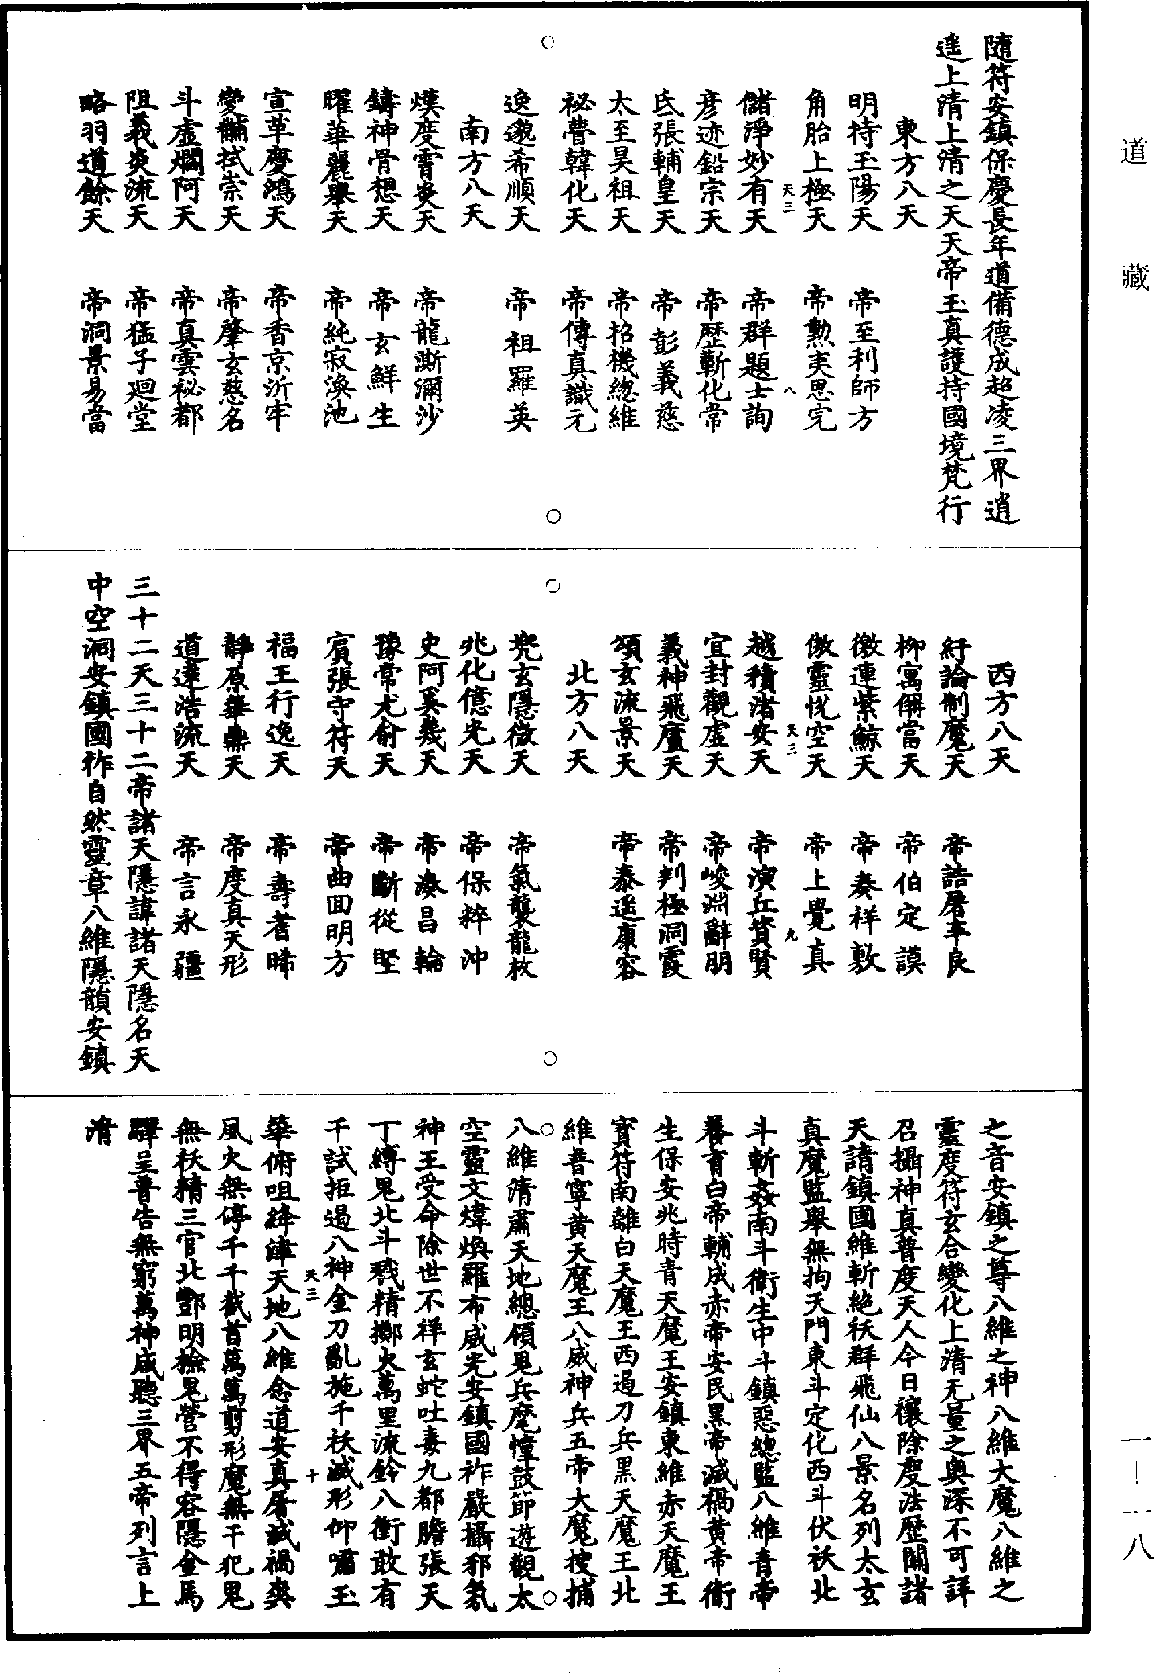 隨符安鎮保慶長年道備德成超凌三界逍
遥上清上清之天天帝玉真護持國境梵行
東方八天
明持玉陽天 帝至利師方
角胎上極天 帝勲夷思完
天三 八
儲淨妙有天 帝群題士詢
彦迹鉛宗天 帝歷斬化常
氐張輔皇天 帝彭義慈
太至昊祖天 帝招機總維
祕瞢韓化天 帝傳真識元
逸邈希順天 帝祖羅英
南方八天
熯度霄炎天 帝龍澌瀰沙
鑄神骨想天 帝玄鮮生
曜華麗舉天 帝純寂渙池
宣草慶鴻天 帝香京沂牢
變黼拭崇天 帝肇玄慈名
斗虛爛阿天 帝真雲祕都
阻義炎流天 帝猛子廻堂
略羽道餘天 帝洞景易當
西方八天
紆論制魔天 帝誥屠平良
柳寓儕當天 帝伯定謨
徼連紫鯨天 帝奏祥敷
傲靈忱空天 帝上覺真
天三 九
越積渚安天 帝演丘質賢
宜封觀虛天 帝峻淵辭朋
義神飛廬天 帝判極洞霞
頌玄流景天 帝泰遥康容
北方八天
兠玄隱微天 帝氣襲龍枚
兆化億光天 帝保粹沖
史阿奚幾天 帝湊昌輪
豫常尤俞天 帝斷從堅
賓張守符天 帝曲回明方
福王行逸天 帝壽耆晞
靜原華鼎天 帝度真天形
道達浩流天 帝言永疆
三十二天三十二帝諸天隱諱諸天隱名天
中空洞安鎮國祚自然靈章八維隱韻安鎮
之音安鎮之尊八維之神八維大魔八維之
靈度符玄合變化上清无量之奥深不可詳
召攝神真普度天人今日禳除慶法歷關諸
天請鎮國維斬絶祅群飛仙八景名列太玄
真魔監舉無拘天門東斗定化西斗伏祅北
斗斬姦南斗衛生中斗鎮惡總監八維青帝
養育白帝輔成赤帝安民黑帝滅禍黄帝衛
生保安兆時青天魔王安鎮東維赤天魔王
寶符南離白天魔王西遏刀兵黑天魔王北
維普寧黄天魔王八威神兵五帝大魔搜捕
八維清肅天地總領鬼兵麾幢鼓節遊觀太
空靈文煒煥羅布威光安鎮國祚嚴攝邪氣
神王受命除世不祥玄蛇吐毒九都膽張天
丁縛鬼北斗戮精擲火萬里流鈴八衝敢有
干試拒遏八神金刀亂施千祅滅形仰嘯玉
天三 十
華俯咀絳津天地八維念道安真屠滅禍與
風火無停千千截首萬萬剪形魔無干犯鬼
無祅精三官北酆明撿鬼營不得容隱金馬
驛呈普告無窮萬神咸聽三界五帝列言上
清
道藏
一—一八